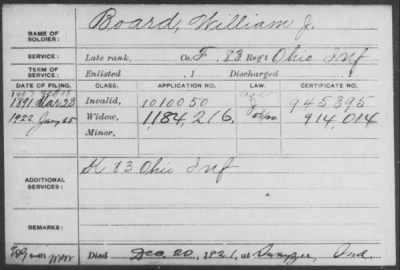 Board, William J.
NAME OF
SOLDIER:
SERVICE:
Late rank, Co. F, 83 Reg't Ohio Inf
TERM OF
SERVICE:
Enlisted , 1 Discharged , 1
DATE OF FILING. CLASS. APPLICATION NO. LAW. CERTIFICATE NO.
1891 Mar 23 Invalid, 1010050 945,395
1922 Jany 25 Widow, 1,184,216 914,014
Minor,
K 83 Ohio Inf
ADDITIONAL
SERVICES:
REMARKS:
Died Dec. 20, 1921, at Swayzee, Ind.